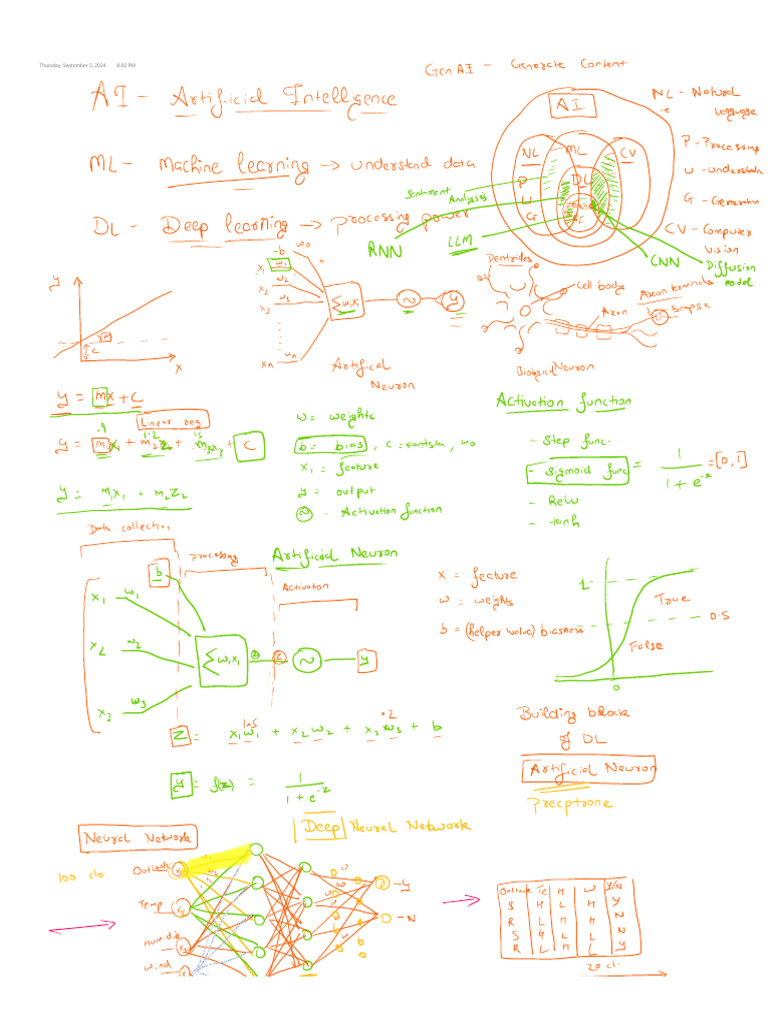 Thursday, September 5, 2024 8:02 PM
GenAI - Generate Content
AI - Artificial Intelligence
ML - Machine learning -> understand data
DL - Deep learning -> processing power
AI
NL
ML
CV
P
DL
U
G
AI
NL - Natural
Language
P - Processing
U - Understan
G - Generation
CV - Computer
Vision
Sentiment
Analysis
RNN
LLM
CNN
Diffusion
model
y
c
x
-b
w0
x1
w1
x2
w2
x3
w3
xn
wn
Σwixi
~
y
Artifical
Neuron
Dentrides
Cell body
Axon terminals
Axon
Sinapse
Biological Neuron
y = mx + c
Linear reg.
.9
1.2
y = m1x + m2x2 + m3x3 + C
y = m1x1 + m2x2
w = weights
b = bias, c = constam, w0
x1 = feature
y = output
~ - Activation function
Activation function
- Step func.
- Sigmoid func = 1 / (1 + e^-x) = [0, 1]
- Relu
- tanh
Data collection
processing
Activation
Artificial Neuron
b
x1 w1
x2 w2
x3 w3
Σwixi
z
~
y
x = fecture
w = weights
b = (helper value) biasness
1
True
0.5
False
0
z = x1w1 + x2w2 + x3w3 + b
y = f(x) = 1 / (1 + e^-z)
Building block
of DL
Artificial Neuron
Precptrone
Neural Network
Deep Neural Network
100 clo
Outlook
Temp
Humidit
wind
-Y
-N
Outlook Te H W Y/N
S H H L Y
R L H H N
S H L L N
R L H L Y
20 cl.